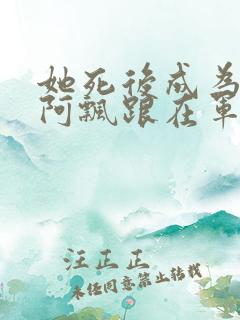 她死後成為
阿飄跟在軍
汪正正
未經同意禁止轉載